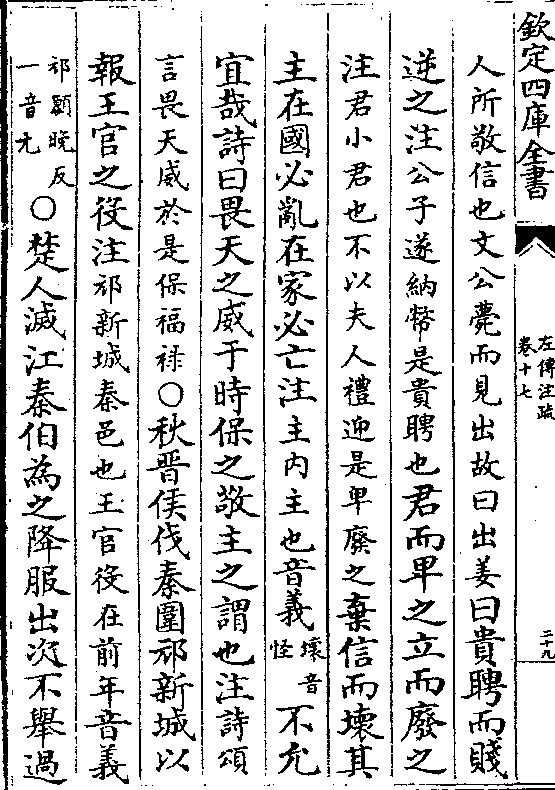 欽定四庫全書
左傳注疏
卷十七
二十九
人所敬信也文公薨而見出故曰出姜曰貴聘而賤
逆之注公子遂納幣是貴聘也君而卑之立而廢之
注君小君也不以夫人禮迎是卑廢之棄信而壞其
主在國必亂在家必亡注主内主也音義壞音怪不允
宜哉詩曰畏天之威于時保之敬主之謂也注詩頌
言畏天威於是保福禄〇秋晉侯伐秦圍邧新城以
報王官之役注邧新城秦邑也王官役在前年音義
邧願晚反一音元〇楚人滅江秦伯為之降服出次不舉過